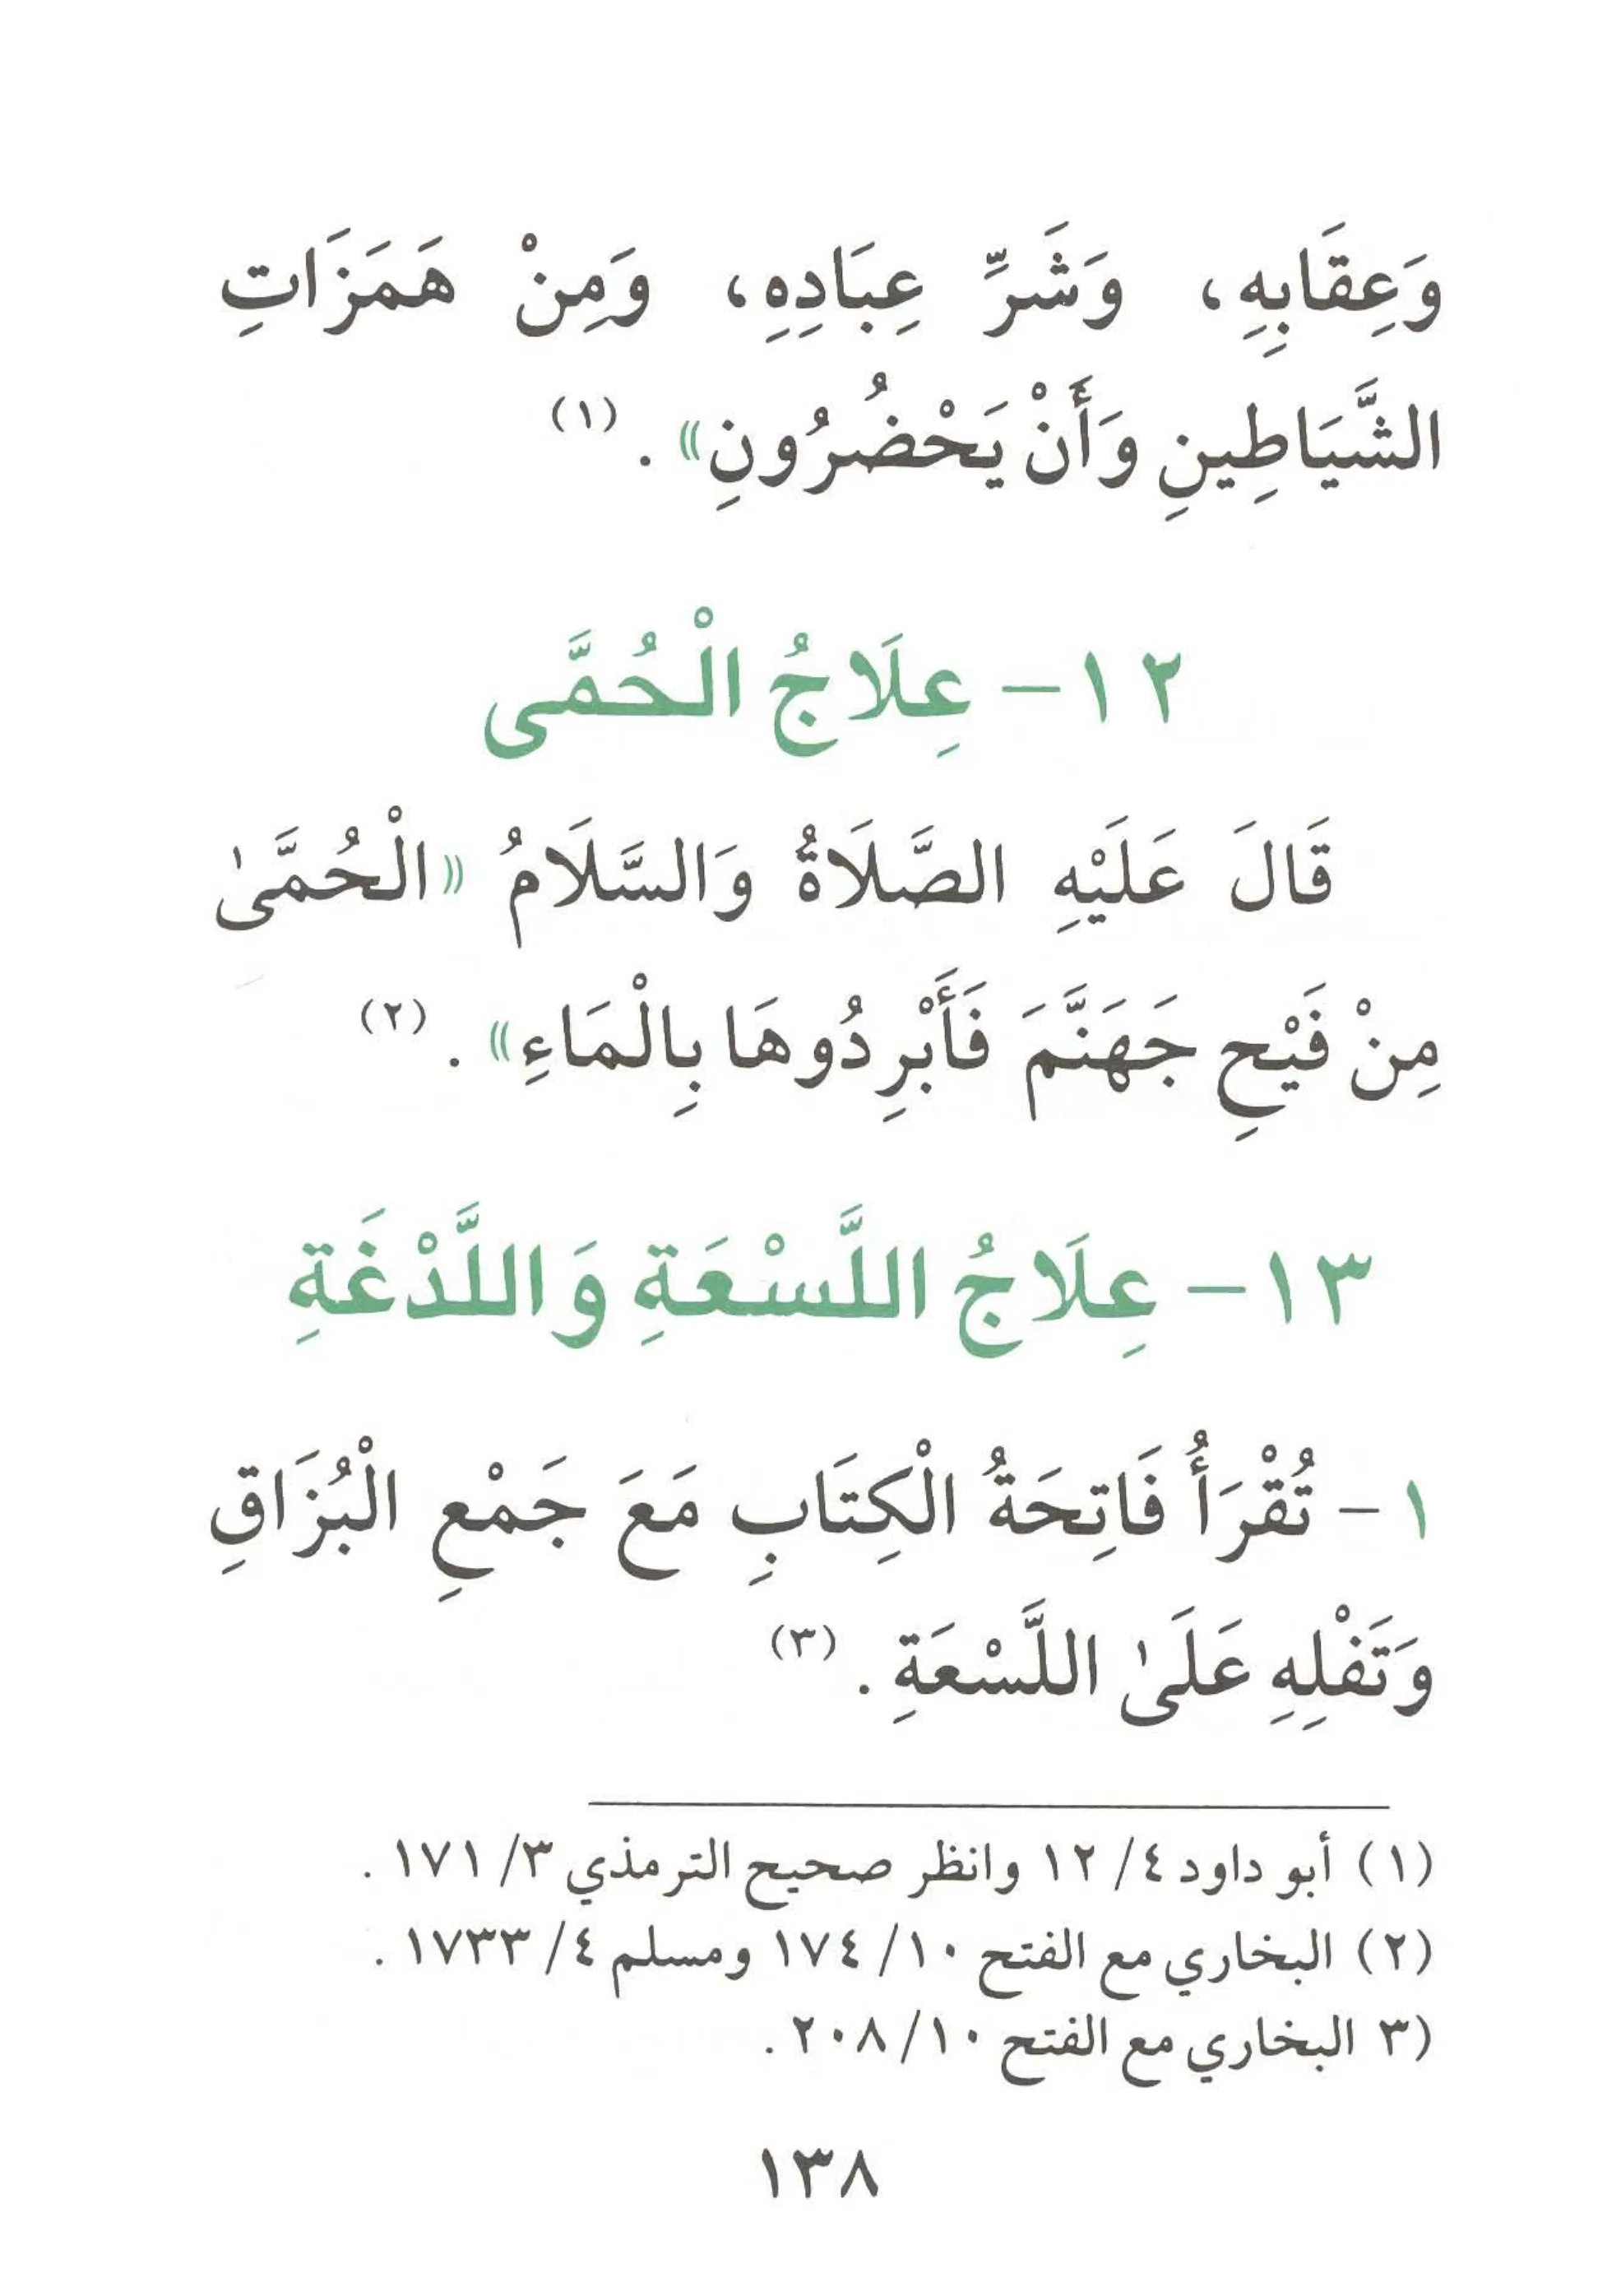 وَعِقَابِهِ، وَشَرِّ عِبَادِهِ، وَمِنْ هَمَزَاتِ
الشَّيَاطِينِ وَأَنْ يَحْضُرُونِ» . (١)
١٢ - عِلَاجُ الْحُمَّى
قَالَ عَلَيْهِ الصَّلَاةُ وَالسَّلَامُ «الْحُمَّىٰ
مِنْ فَيْحِ جَهَنَّمَ فَأَبْرِدُوهَا بِالْمَاءِ» . (٢)
١٣ - عِلَاجُ اللَّسْعَةِ وَاللَّدْغَةِ
١ - تُقْرَأُ فَاتِحَةُ الْكِتَابِ مَعَ جَمْعِ الْبُزَاقِ
وَتَفْلِهِ عَلَىٰ اللَّسْعَةِ . (٣)
(١) أبو داود ٤/ ١٢ وانظر صحيح الترمذي ٣/ ١٧١ .
(٢) البخاري مع الفتح ١٠/ ١٧٤ ومسلم ٤/ ١٧٣٣ .
(٣ البخاري مع الفتح ١٠/ ٢٠٨ .
١٣٨